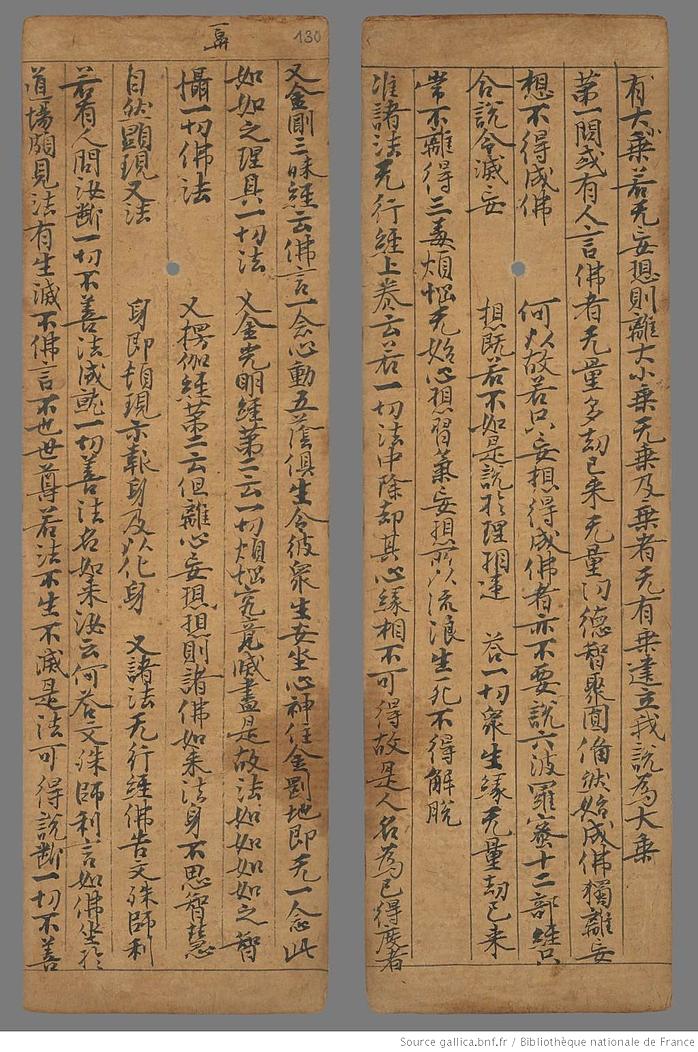 有大乘若无妄想則離大小乘无乘及乘者无有乘建立我說為大乘
第一問或有人言佛者无量多劫已来无量功德智聚圓備然始成佛獨離妄
想不得成佛 何以故若只妄想得成佛者亦不要說六波羅蜜十二部經只
合說令滅妄 想既若不如是說於理相違 答一切衆生緣无量劫已来
常不離得三毒煩惱无始心想習氣妄想所以流浪生死不得解脫
准諸法无行經上卷云若一切法中除却其心緣相不可得故是人名為已得度者
130
又金剛三昧經云佛言一念心動五蔭俱生令彼衆生安坐心神住金剛地即无一念此
如如之理具一切法 又金光明經第二云一切煩惱究竟滅盡是故法如如如如之智
攝一切佛法 又楞伽經第二云但離心妄想想則諸佛如来法身不思智慧
自然顯現又法 身即頓現示報身及以化身 又諸法无行經佛告文殊師利
若有人問汝斷一切不善法成就一切善法名如来汝云何答文殊師利言如佛坐於
道場頗見法有生滅不佛言不也世尊若法不生不滅是法可得說斷一切不善
Source gallica.bnf.fr / Bibliothèque nationale de France